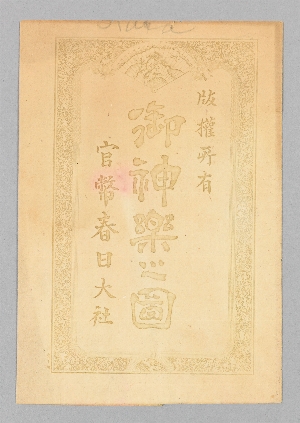 版権所有
御神樂之圖
官幣春日大社